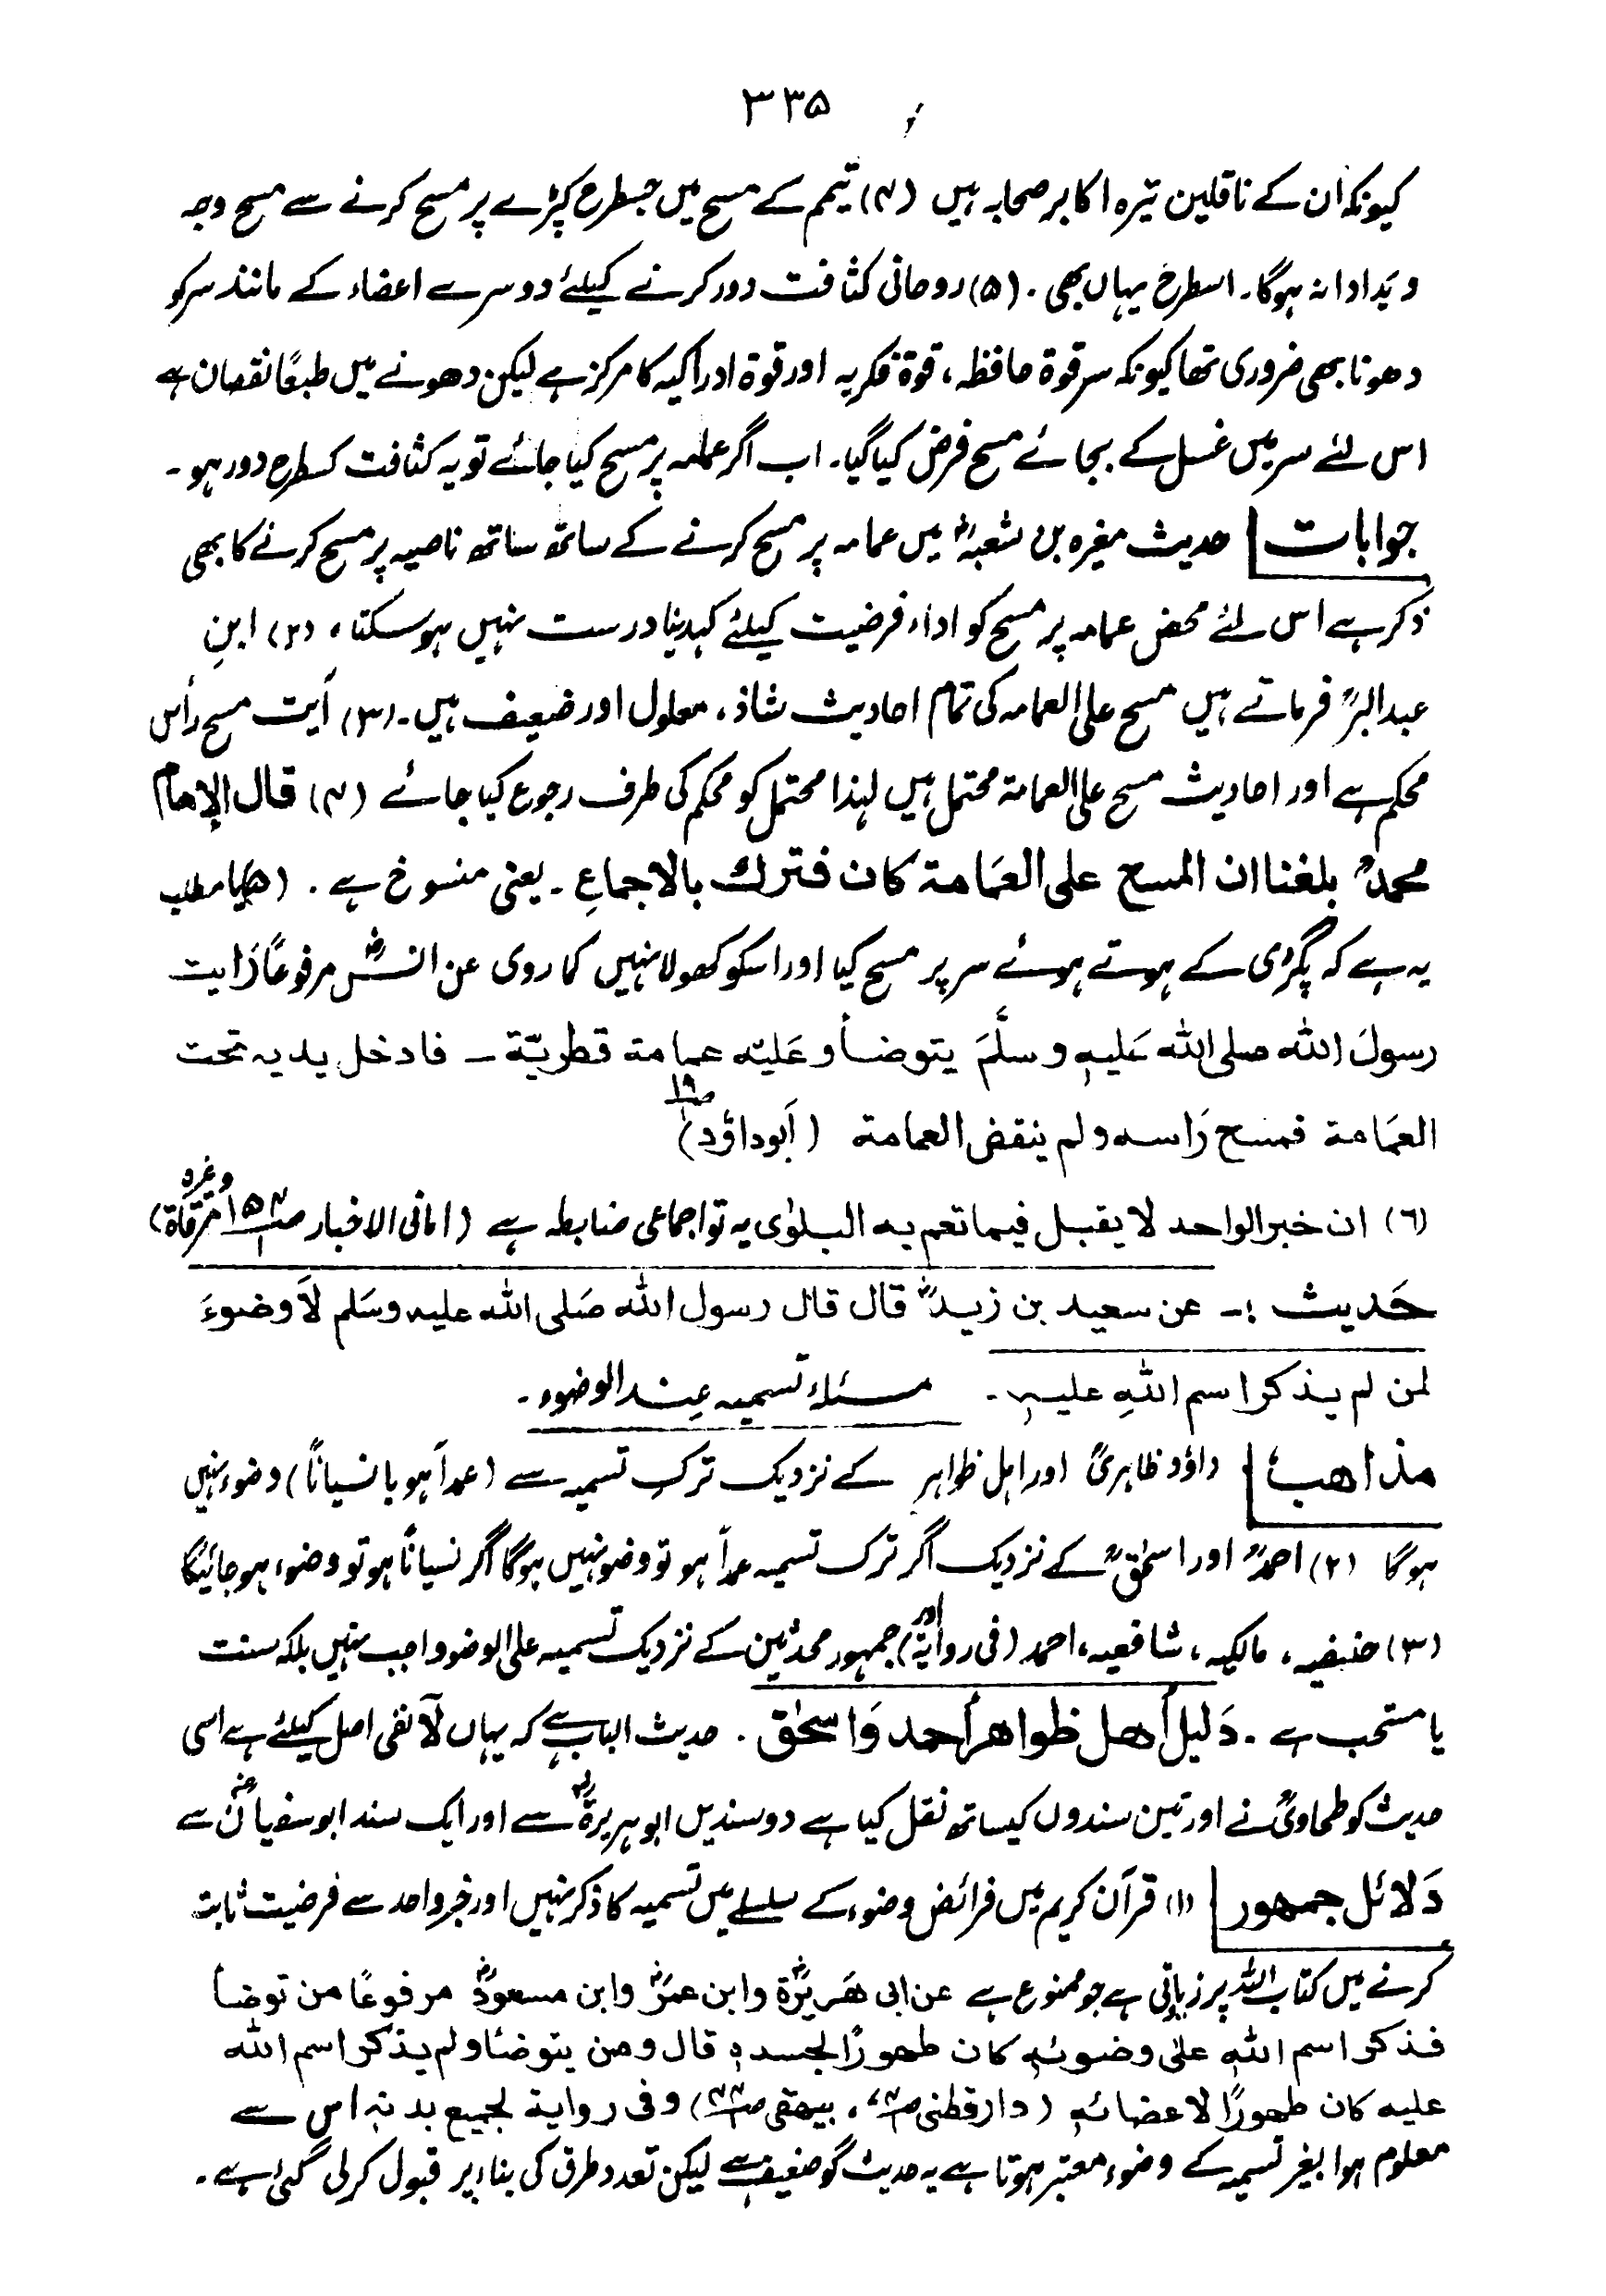 ۳۳۵
کیونکہ ان کے ناقلین تیرہ اکابر صحابہ ہیں (۴) تیمم کے مسح میں جسطرح کپڑے پر مسح کرنے سے مسح وجہ
و ید ادا نہ ہوگا۔ اسطرح یہاں بھی ۔ (۵) روحانی کثافت دور کرنے کیلئے دوسرے اعضاء کے مانند سر کو
دھونا بھی ضروری تھا کیونکہ سر قوۃ حافظہ، قوۃ فکریہ اور قوۃ ادراکیہ کا مرکز ہے لیکن دھونے میں طبعًا نقصان ہے
اس لئے سر میں غسل کے بجائے مسح فرض کیا گیا۔ اب اگر عمامہ پر مسح کیا جائے تو یہ کثافت کسطرح دور ہو ۔
جوابات حدیث مغیرہ بن شعبہؓ میں عمامہ پر مسح کرنے کے ساتھ ساتھ ناصیہ پر مسح کرنے کا بھی
ذکر ہے اس لئے محض عمامہ پر مسح کو اداء فرضیت کیلئے کہدینا درست نہیں ہوسکتا، (۲) ابنِ
عبدالبرؒ فرماتے ہیں مسح علی العمامہ کی تمام احادیث شاذ، معلول اور ضعیف ہیں۔ (۳) آیت مسح رأس
محکم ہے اور احادیث مسح علی العمامۃ محتمل ہیں لہذا محتمل کو محکم کی طرف رجوع کیا جائے (۴) قال الإمام
محمدؒ بلغنا ان المسح علی العَمَامۃ کان فترک بالاجماعِ ۔ یعنی منسوخ ہے ۔ (۵) یا مطلب
یہ ہے کہ پگڑی کے ہوتے ہوئے سر پر مسح کیا اور اسکو کھولا نہیں کما روی عن انسؓ مرفوعًا رَایت
رسولَ اللہ صلی اللہ عَلیہِ وسلَّمَ یتوضأ و عَلیْہ عمامۃ قطریّۃ ۔ فادخل یدیہ تحت
العمَامۃ فمسح رَاسہ و لم ینقض العمامۃ (اَبوداؤد) ص۱۹
(٦) ان خبر الواحد لا یقبل فیما تعم بہ البلوٰی یہ تو اجماعی ضابطہ ہے (امانی الاخبار ص۱۵۴/۱ مرقاۃ وغیرہ)
حَدیث :۔ عن سعید بن زیدؓ قال قال رسول اللہ صَلی اللہ علیہ وسَلم لاَ وضوءَ
لمن لم یذکر اسم اللہِ علیہِ ۔ مسئلۂ تسمیہ عِند الوضوء ۔
مذاھب داؤد ظاہریؒ اور اہل ظواہر کے نزدیک ترکِ تسمیہ سے (عمداً ہو یا نسیاناً) وضوء نہیں
ہوگا (۲) احمدؒ اور اسحٰقؒ کے نزدیک اگر ترک تسمیہ عمداً ہو تو وضو نہیں ہوگا اگر نسیاناً ہو تو وضوء ہو جائیگا
(۳) حنیفیہ، مالکیہ، شافعیہ، احمد (فی روایۃ) اور جمہور محدثین کے نزدیک تسمیہ علی الوضو واجب نہیں بلکہ سنت
یا مستحب ہے ۔ دَلیل اَھل ظواھر اَحمد وَاسحٰق ۔ حدیث الباب ہے کہ یہاں لاَ نفی اصل کیلئے ہے اسی
حدیث کو طحاویؒ نے اور تین سندوں کیساتھ نقل کیا ہے دو سندیں ابوہریرۃؓ سے اور ایک سند ابوسفیانؓ سے
دَلائل جمھور (۱) قرآن کریم میں فرائض وضوء کے سلسلے میں تسمیہ کا ذکر نہیں اور خبر واحد سے فرضیت ثابت
کرنے میں کتاب اللہ پر زیاتی ہے جو ممنوع ہے عن ابی ھَریرۃؓ وابن عمرؓ وابن مسعودؓ مرفوعًا من توضأ
فذکر اسم اللہِ علیٰ وضوئہٖ کان طھورًا لجسدہٖ قال ومن یتوضأ ولم یذکر اسم اللہ
علیہ کان طھورًا لاعضائہٖ (دارقطنی ، بیھقی ص۴۴) وفی روایۃ لجمیع بدنہٖ اس سے
معلوم ہوا بغیر تسمیہ کے وضوء معتبر ہوتا ہے یہ حدیث گو ضعیف ہے لیکن تعدد طرق کی بناء پر قبول کرلی گئی ہے ۔